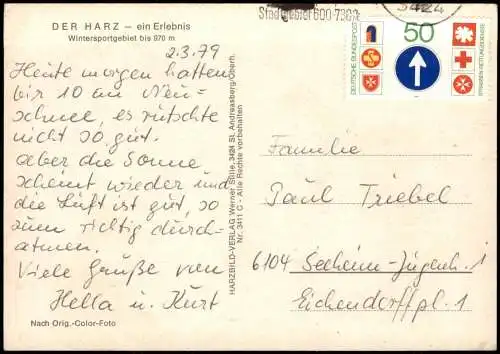 DER HARZ – ein Erlebnis
Wintersportgebiet bis 970 m
2.3.79
Heute morgen hatten
wir 10 cm Neu-
schnee, es rutschte
nicht so gut.
aber die Sonne
scheint wieder und
die Luft ist gut, so
zum richtig durch-
atmen.
Viele Grüße von
Hella u. Kurt
Nach Orig.-Color-Foto
HARZBILD-VERLAG Werner Stille, 3424 St. Andreasberg/Oberh.
Nr. 3411 C - Alle Rechte vorbehalten
3424
DEUTSCHE BUNDESPOST
50
STRASSEN-RETTUNGSDIENST
Familie
Paul Triebel
6104 Seeheim-Jugenh. 1
Eichendorffpl. 1